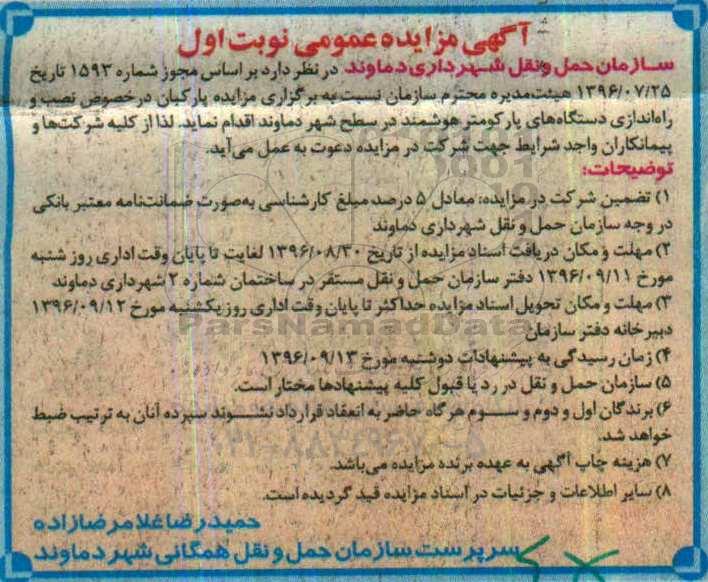 آگهی مزایده عمومی نوبت اول
سازمان حمل و نقل شهرداری دماوند در نظر دارد بر اساس مجوز شماره ۱۵۹۳ تاریخ
۱۳۹۶/۰۷/۲۵ هیئت‌مدیره محترم سازمان نسبت به برگزاری مزایده پارکبان درخصوص نصب و
راه‌اندازی دستگاه‌های پارکومتر هوشمند در سطح شهر دماوند اقدام نماید. لذا از کلیه شرکت‌ها و
پیمانکاران واجد شرایط جهت شرکت در مزایده دعوت به عمل می‌آید.
توضیحات:
۱) تضمین شرکت در مزایده: معادل ۵ درصد مبلغ کارشناسی به‌صورت ضمانت‌نامه معتبر بانکی
در وجه سازمان حمل و نقل شهرداری دماوند
۲) مهلت و مکان دریافت اسناد مزایده از تاریخ ۱۳۹۶/۰۸/۳۰ لغایت تا پایان وقت اداری روز شنبه
مورخ ۱۳۹۶/۰۹/۱۱ دفتر سازمان حمل و نقل مستقر در ساختمان شماره ۲ شهرداری دماوند
۳) مهلت و مکان تحویل اسناد مزایده حداکثر تا پایان وقت اداری روز یکشنبه مورخ ۱۳۹۶/۰۹/۱۲
دبیرخانه دفتر سازمان
۴) زمان رسیدگی به پیشنهادات دوشنبه مورخ ۱۳۹۶/۰۹/۱۳
۵) سازمان حمل و نقل در رد یا قبول کلیه پیشنهادها مختار است.
۶) برندگان اول و دوم و سوم هرگاه حاضر به انعقاد قرارداد نشوند سپرده آنان به ترتیب ضبط
خواهد شد.
۷) هزینه چاپ آگهی به عهده برنده مزایده می‌باشد.
۸) سایر اطلاعات و جزئیات در اسناد مزایده قید گردیده است.
حمیدرضا غلامرضازاده
سرپرست سازمان حمل و نقل همگانی شهر دماوند
ParsNamadData
۰۲۱-۸۸۳۴۹۶۷۰-۵